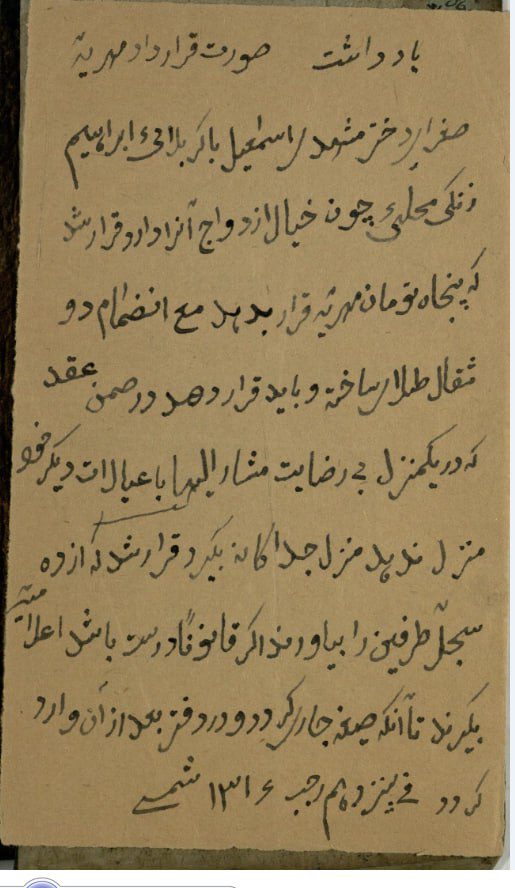 یادداشت صورت قرارداد مهریه
صغرا دختر مشهدی اسمعیل با کربلائی ابراهیم
زنکی محلهٔ چون خیال ازدواج آنرا دارد قرار شد
که پنجاه تومان مهریه قرار بدهد مع انضمام دو
مثقال طلای ساخته و باید قرار دهد در ضمن عقد
که در یکمنزل بی رضایت مشار الیها با عیالات دیکر خود
منزل ندهد منزل جداکانه بکیرد قرار شد که از ده
سجلّ طرفین را بیاورند اکر قانوناً درست باشد اعلامیّه
بکیرند تا آنکه صیغه جاری کردد و در دفتر بعد از آن وارد
کردد فی پنزدهم رجب ۱۳۱۶ شمسی